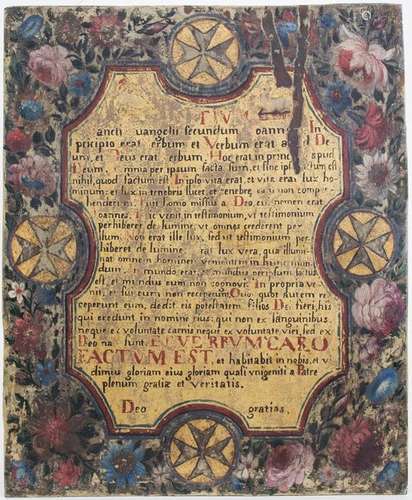 INITIUM
ancti uangelii secundum oann In
pricipio erat erbum et Verbum erat a De
um, et Deus erat erbum, Hoc erat in princ apud
Deum, mnia per ipsum facta sunt, et sine ipso factum est
nihil, quod factum est In ipso vita erat, et vita erat lux ho
minum: et lux in tenebris lucet, et tenebre ea non compr
henderunt. Fuit homo missus a Deo, cui nomen erat
oannes. Hic venit in testimonium, vt testimonium
perhiberet de lumine, vt omnes crederent per
illum. Non erat ille lux, sed vt testimonium per
hiberet de lumine. rat lux vera, qua illumi
nat omnem hominem venientem in hunc mun
dum. mundo erat, et mundus per ipsum factus
est, et mundus eum non cognovit. In propria ve
nit, et sui eum non receperunt. Quot quot autem re
ceperunt eum, dedit eis potestatem filios Dei fieri, his
qui credunt in nomine eius: qui non ex sanguinibus,
neque ex voluntate carnis neque ex voluntate viri, sed ex
Deo nati sunt. ET VERBUM CARO
FACTUM EST, et habitabit in nobis, et vi
dimus gloriam eius gloriam quasi vnigeniti a Patre
plenum gratiæ et veritatis.
Deo gratias.